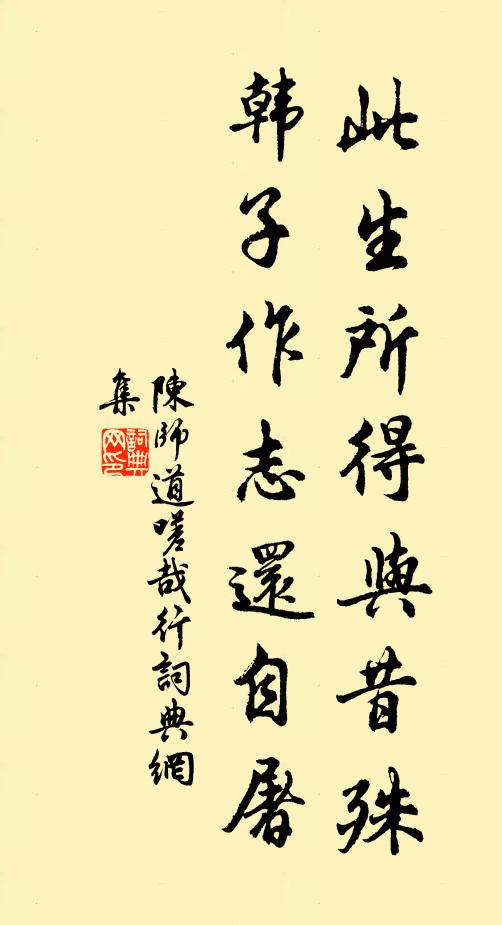 此生所得與昔殊
韓子作志還自屠
陳師道嗟哉行詞典網
集
詞典
网印